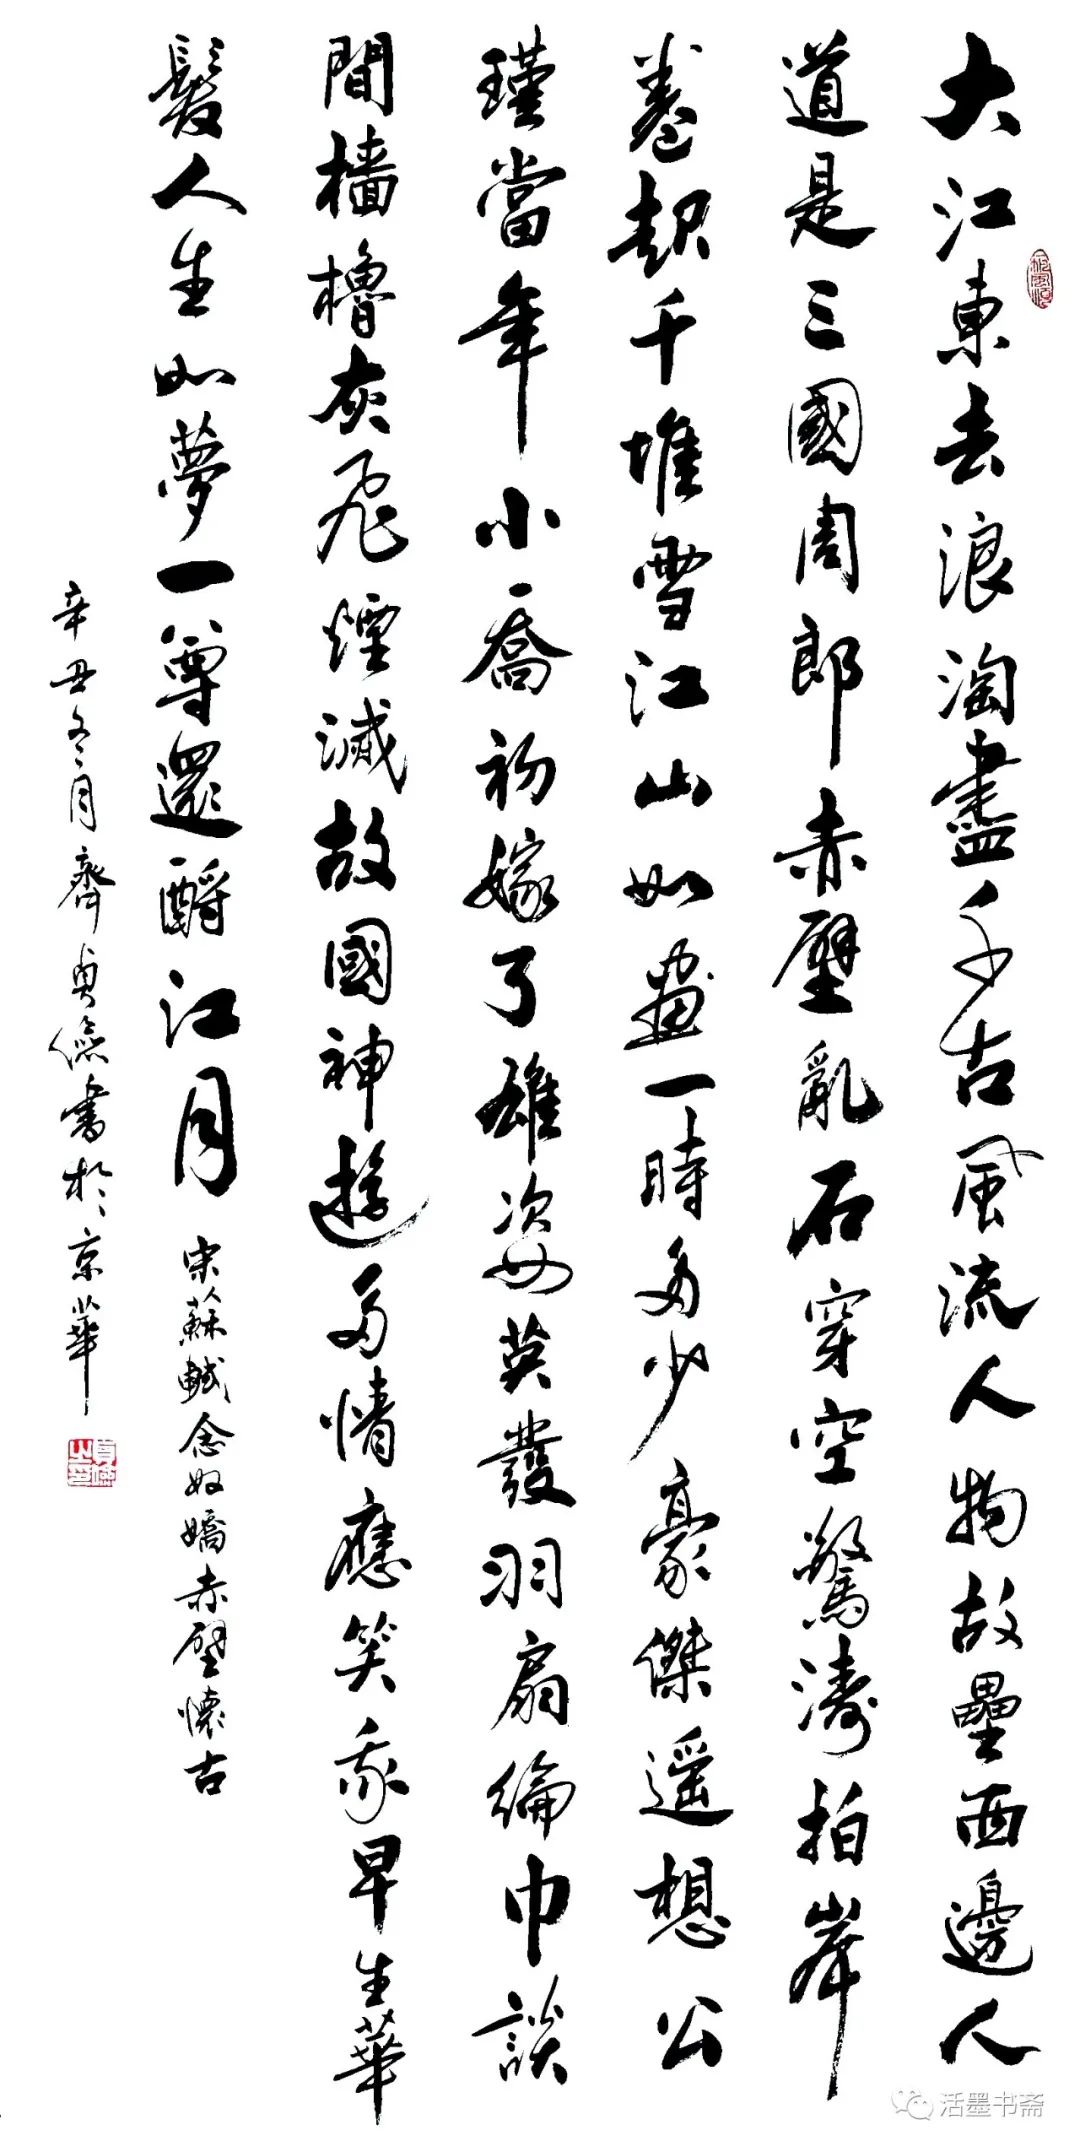 大江東去浪淘盡千古風流人物故壘西邊人
道是三國周郎赤壁亂石穿空驚濤拍岸
卷起千堆雪江山如畫一時多少豪傑遥想公
瑾當年小喬初嫁了雄姿英發羽扇綸巾談
間檣櫓灰飛煙滅故國神遊多情應笑我早生華
髮人生如夢一尊還酹江月 宋蘇軾念奴嬌赤壁懷古
辛丑冬月齊貞儉書於京華
活墨书斋